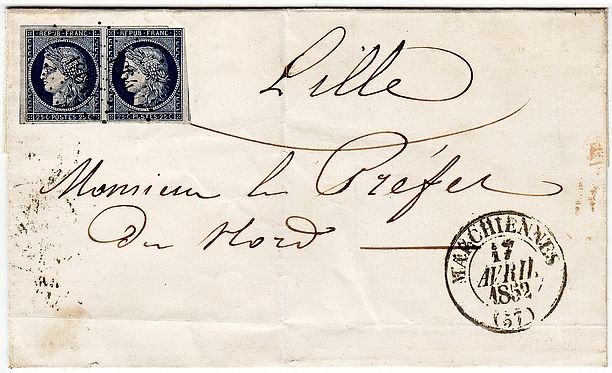 REPUB. FRANC. REPUB. FRANC.
25 C POSTES 25 C 25 C POSTES 25 C
Lille
Monsieur le Préfet
Du Nord
MARCHIENNES
17
AVRIL
1852
(57)